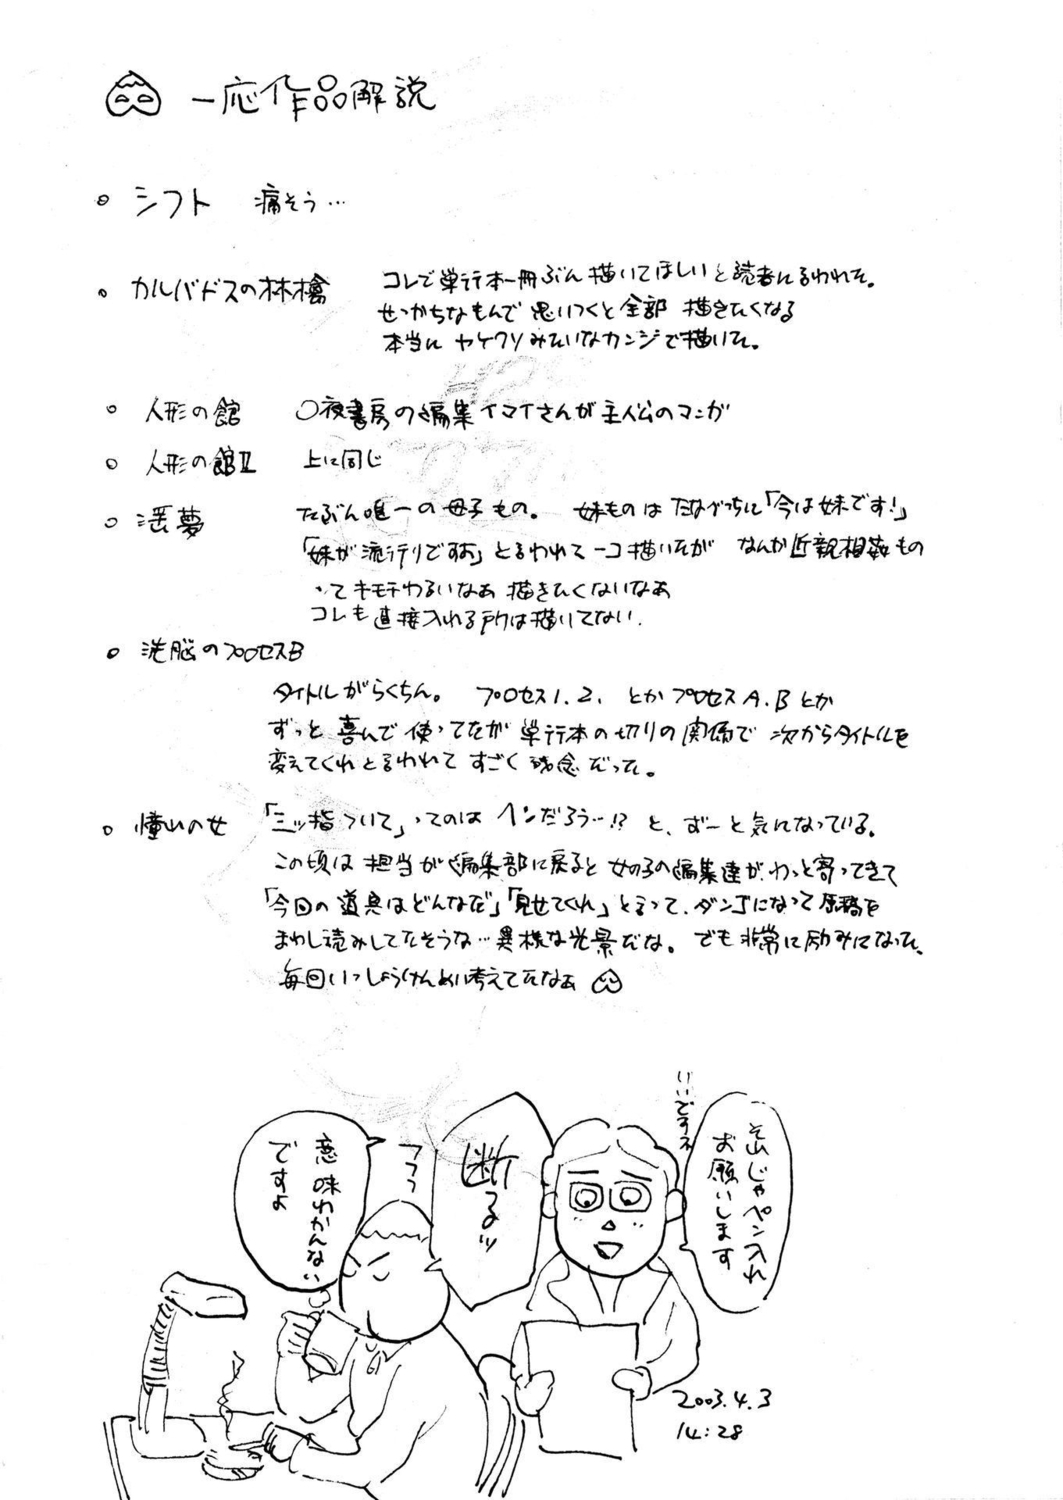 一応作品解説
シフト 痛そう…
カルバドスの林檎 コレで単行本一冊ぶん描いてほしいと読者に言われた。
せっかちなもんで思いつくと全部描きたくなる
本当にヤケクソみたいなカンジで描いた。
人形の館 〇夜書房の編集イマイさんが主人公のマンガ
人形の館Ⅱ 上に同じ
淫夢 たぶん唯一の母子もの。 妹ものは たなべっちに「今は妹です!」
「妹が流行りですお」と言われて一コ描いたが なんか近親相姦もの
ってキモチわるいなあ 描きたくないなあ
コレも直接入れる所は描いてない.
洗脳のプロセスB
タイトルがらくちん。 プロセス1.2. とかプロセスA.Bとか
ずっと喜んで使ってたが単行本の切りの関係で次からタイトルを
変えてくれと言われてすごく残念だった。
憧れの女 「三ッ指ついて」ってのはヘンだろう…!?と、ずーと気になっている。
この頃は担当が編集部に戻ると女の子の編集達がわっと寄ってきて
「今回の道具はどんなだ」「見せてくれ」と言って、ダンゴになって原稿を
まわし読みしてたそうな…異様な光景だな。でも非常に励みになった、
毎回いっしょうけんめい考えてたなぁ
いいですネ
それじゃペン入れ
お願いします
断るッ
フフフ
意味わかんない
ですよ
2003.4.3
14:28